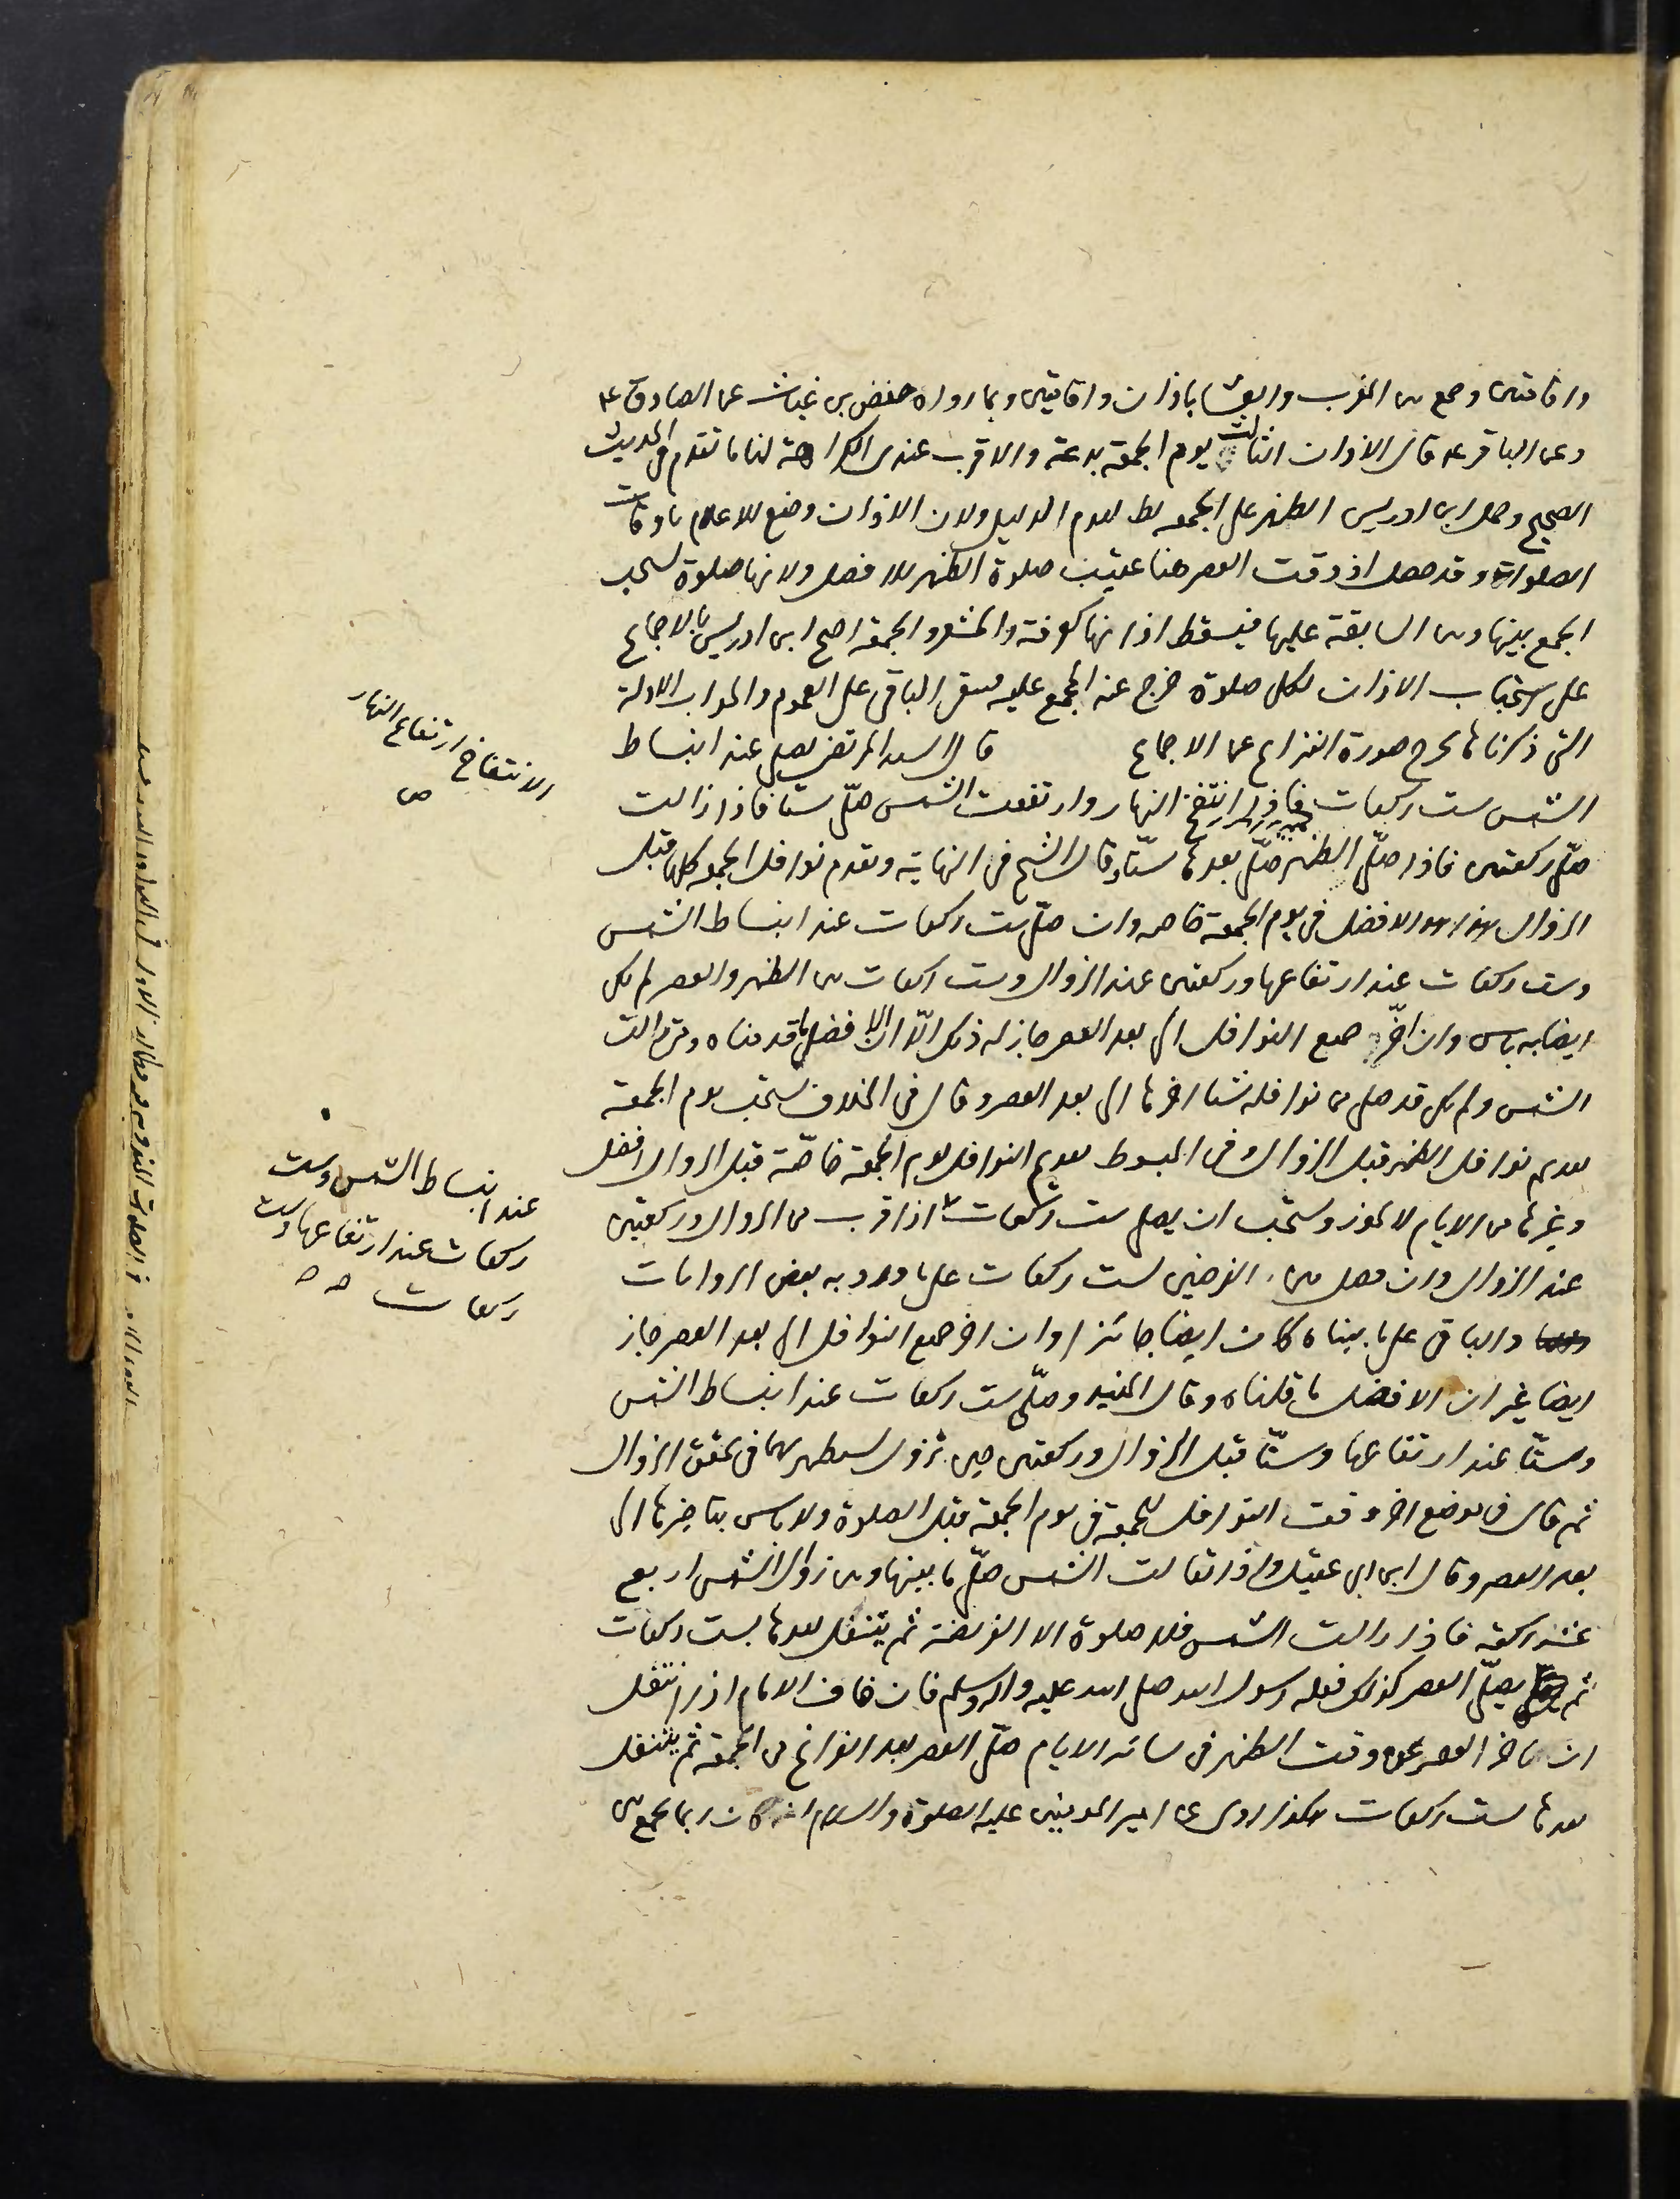 واقامتين وجمع بين المغرب والعشا باذان واقامتين وبما رواه حفص بن غياث عن الصادق ع
وعن الباقر ع قال الاذان الثالث يوم الجمعة بدعة والاقرب عندى الكراهة لنا ما تقدم فى الحديث
الصحيح وحمل ابن ادريس الظهر على الجمعه لعدم الدليل ولان الاذان وضع للاعلام باوقات
الصلوات وقد حصل اذ وقت العصر هنا عقيب صلوة الظهر بلا فصل ولانها صلوة يستحب
الجمع بينها وبين السابقة عليها فيسقط اذانها كعرفة والمشعر والجمعة احتج ابن ادريس بالاجماع
على استحباب الاذان لكل صلوة خرج عنه المجمع عليه فيبقى الباقى على العموم والجواب الادلة
التى ذكرناها تخرج صورة النزاع عن الاجماع قال السيد المرتضى يصلى عند انبساط
الشمس ست ركعات فاذا انتفخ النهار وارتفعت الشمس صلّى ستا فاذا زالت
صلّى ركعتين فاذا صلّى الظهر صلّى بعدها ستّا وقال الشيخ فى النهاية وتقدم نوافل الجمعه كلها قبل
الزوال هذا هو الافضل فى يوم الجمعة خاصه وان صلّى ست ركعات عند انبساط الشمس
وست ركعات عند ارتفاعها وركعتين عند الزوال وست ركعات بين الظهر والعصر لم يكن
ايضا به باس وان اخّر جميع النوافل الى بعد العصر جاز له ذلك الّا ان الافضل ما قدمناه ومتى زالت
الشمس ولم يكن قد صلى من نوافله شيئا اخرها الى بعد العصر وقال فى الخلاف يستحب يوم الجمعة
تقديم نوافل الظهر قبل الزوال وفى المبسوط تقديم النوافل يوم الجمعة خاصّة قبل الزوال افضل
وفى غيرها من الايام لا يجوز ويستحب ان يصلى ست ركعات اذا قرب من الزوال وركعتين
عند الزوال وان فصل بين الفرضين بست ركعات على ما ورد به بعض الروايات
والباقى على ما بيناه كان ايضا جائزا وان اخر جميع النوافل الى بعد العصر جاز
ايضا غير ان الافضل ما قلناه وقال المفيد وصلّى ست ركعات عند انبساط الشمس
وستّا عند ارتفاعها وستّا قبل الزوال وركعتين حين تزول تستظهر بهما فى تحقق الزوال
ثم قال فى موضع اخر وقت النوافل للجمعة فى يوم الجمعة قبل الصلوة ولا باس بتاخيرها الى
بعد العصر وقال ابن ابى عقيل واذا تعالت الشمس صلّى ما بينها وبين زوال الشمس اربع
عشر ركعة فاذا زالت الشمس فلا صلوة الا الفريضة ثم يتنفل بعدها بست ركعات
ثم يصلّى العصر كذلك فعله رسول الله صلى الله عليه واله وسلم فان خاف الامام اذا تنفل
ان تاخر العصر عن وقت الظهر فى سائر الايام صلّى العصر بعد الفراغ من الجمعة ثم يتنفل
بعدها بست ركعات هكذا روى عن امير المومنين عليه الصلوة والسلام انه كان ربما يجمع بين
الانتفاخ ارتفاع النهار
ص
عند انبساط الشمس وست
ركعات عند ارتفاعها وست
ركعات